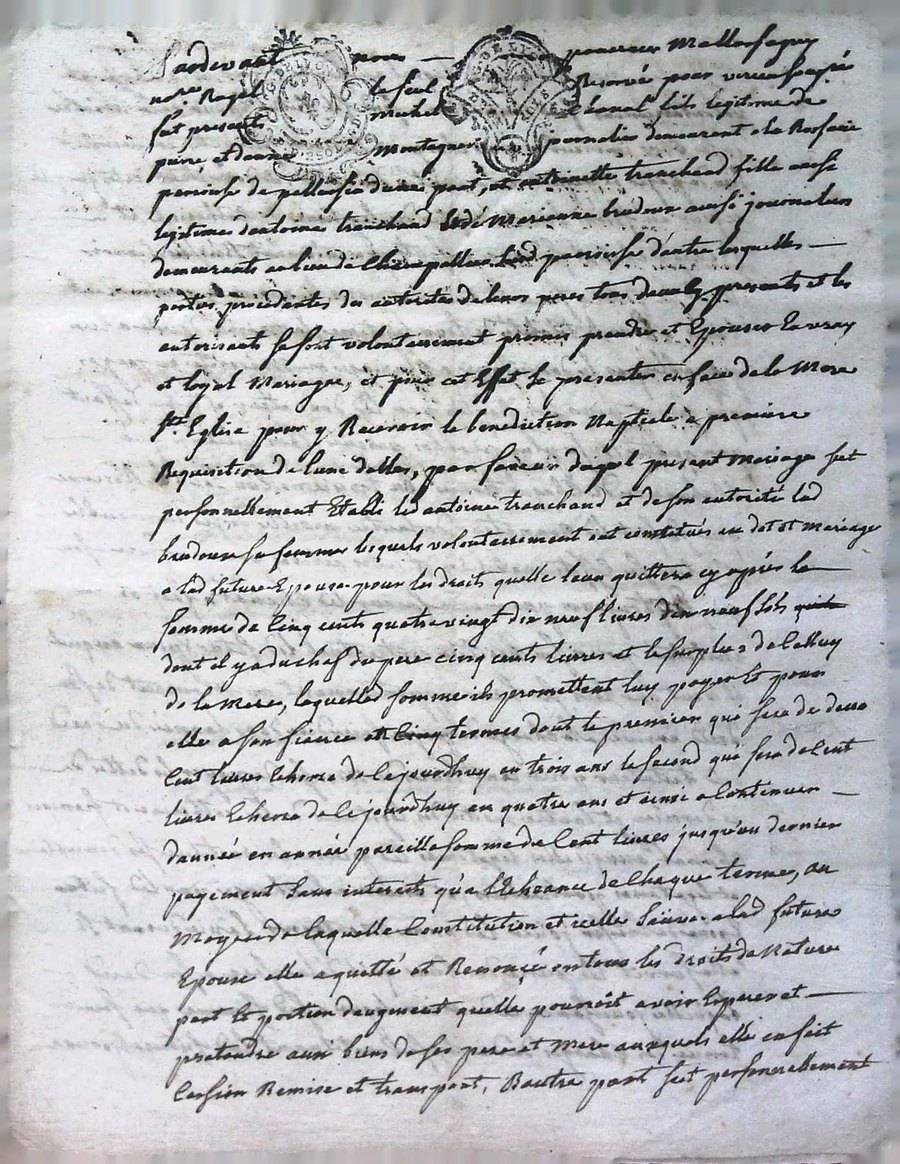 Pardevant nous — pancrace Mallassagny
no.re Royal le seel Reservé pour vivien papié
fut present michel chanal fils legitime de
pierre et danne Montagner journalier demeurant a la Rossaire
paroisse de pellussieu dune part, et antoinette tranchand fille aussi
legitime dantoine tranchand et de Marianne bradoux aussi journaliers
demeurants au lieu de paroisse dautre lesquelles —
parties procedantes des autorités de leurs peres tous deux icy presents et les
autorisants se sont volontairement promis prendre et Epouser En vray
et loyal Mariage, et pour cet Effet se presenter en face de la Mere
Ste Eglise pour y Recevoir la benediction Nuptiale a premiere
Requisition de lune delles, par faveur duquel present mariage fut
personnellement Etabli led antoine tranchand et de son autorité lad
bradoux sa femme lesquels volontairement ont constitués en dot et mariage
a lad future Epouse pour les droits quelle leur quittera cy après la —
somme de Cinq cents quatre vingt dix neuf livres dix neuf sols
dont il y a du chef du pere cinq cents livres et le surplus de Celluy
de la Mere, laquelled somme ils promettent luy payer Et pour
elle a son fiancé en Cinq termes dont le premier qui sera de deux
Cent livres Echerra de Cejourdhuy en trois ans le second qui sera de Cent
livres Echerra de Cejourdhuy en quatre ans et ainsi a Continuer —
dannée en année pareille somme de Cent livres jusqu'au dernier
payement Sans interests qu'a l'Echeance de Chaque terme, au
Moyen de laquelle Constitution et icelle Suivie a lad future
Epouse elle a quitté et Renoncé en tous les droits de Nature
part Et portion daugment quelle pourroit avoir Esperer et —
pretendre aux biens de ses pere et Mere auxquels elle en fait
Cession Remise et transport, Dautre part fut personnellement